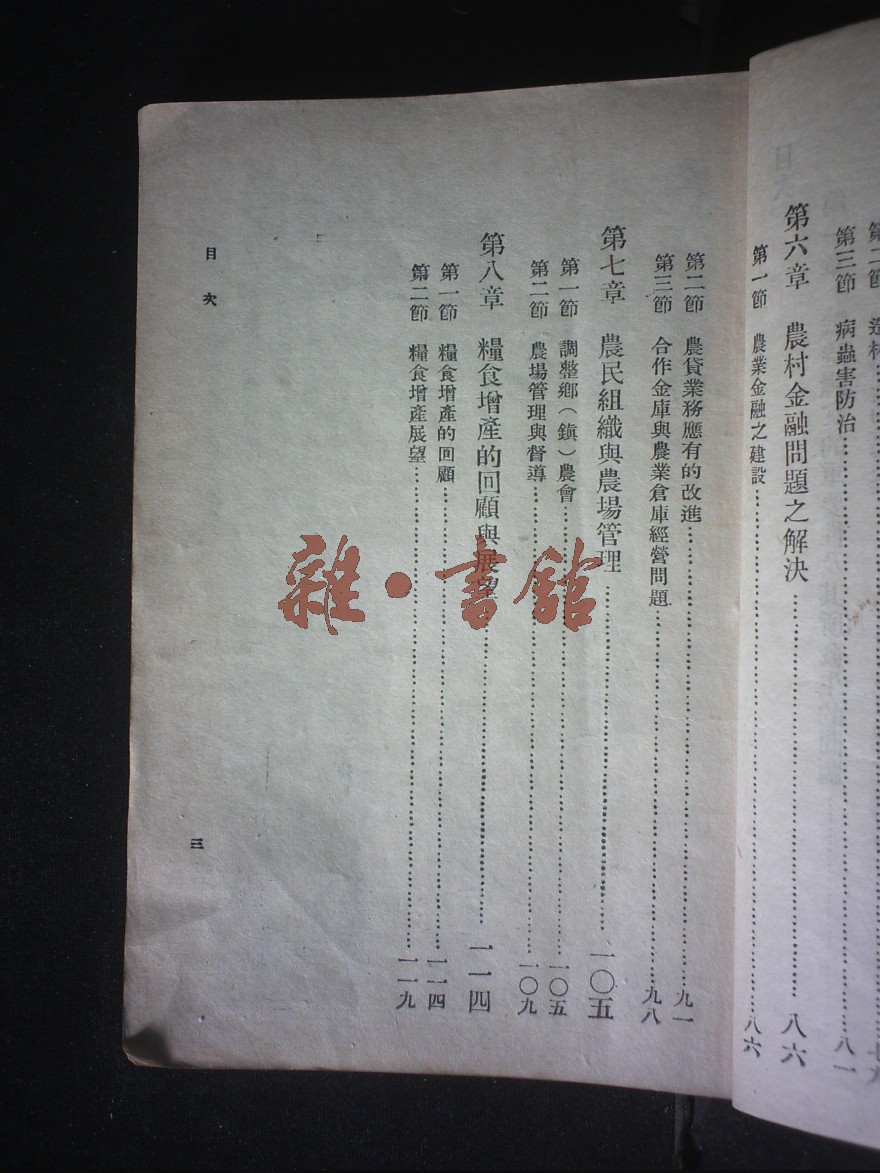 第三節 病蟲害防治……八一
第六章 農村金融問題之解決……八六
第一節 農業金融之建設……八六
第二節 農貸業務應有的改進……九一
第三節 合作金庫與農業倉庫經營問題……九八
第七章 農民組織與農場管理……一〇五
第一節 調整鄉（鎮）農會……一〇五
第二節 農場管理與督導……一〇九
第八章 糧食增產的回顧與展望……一一四
第一節 糧食增產的回顧……一一四
第二節 糧食增產展望……一一九
目次
三
雜·書館